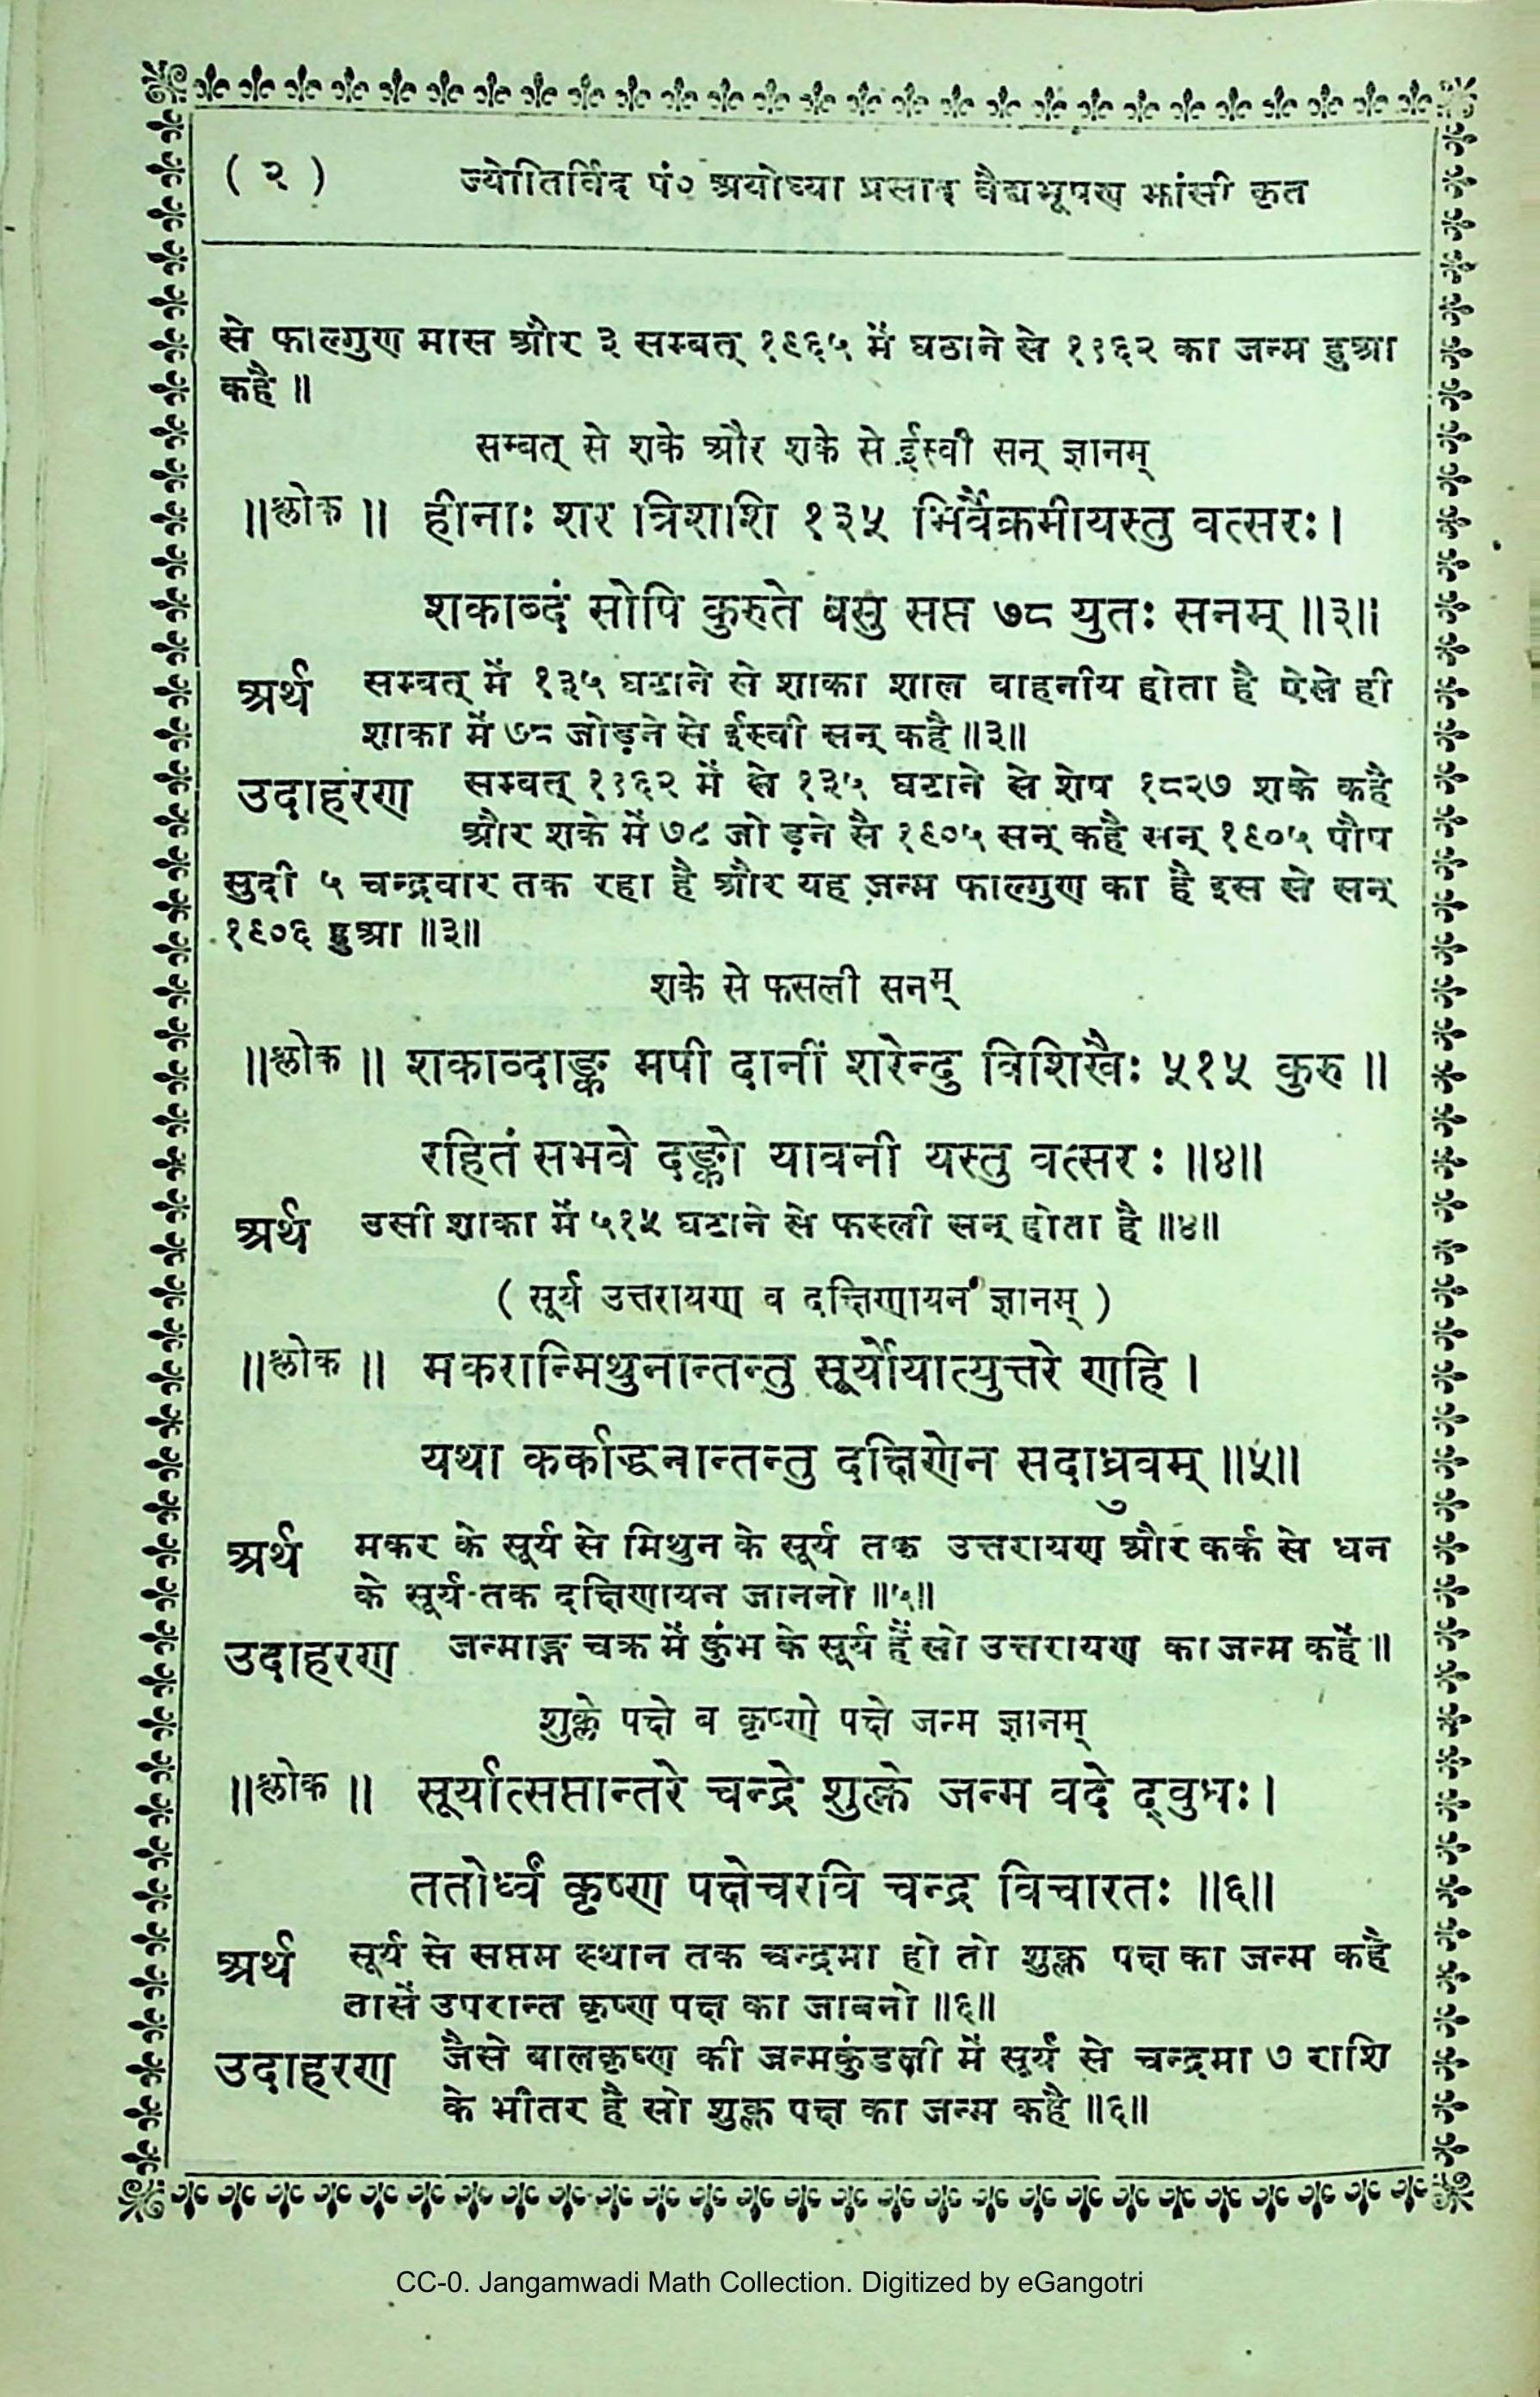 ( २ ) ज्योतिर्विद पं० अयोध्या प्रसाद वैद्यभूषण झांसी कृत
से फाल्गुण मास और ३ सम्बत् १९६५ में घठाने से १९६२ का जन्म हुआ
कहै ॥
सम्बत् से शके और शके से ईस्वी सन् ज्ञानम्
॥श्लोक ॥ हीनाः शर त्रिशशि १३५ भिर्वैक्रमीयस्तु वत्सरः।
शकाब्दं सोपि कुरुते बसु सप्त ७८ युतः सनम् ॥३॥
अर्थ सम्बत् में १३५ घटाने से शाका शाल वाहनीय होता है ऐसे ही
शाका में ७८ जोड़ने से ईस्वी सन् कहै॥३॥
उदाहरण सम्वत् १९६२ में से १३५ घटाने से शेष १८२७ शके कहै
और शके में ७८ जो ड़ने सै १९०५ सन् कहै सन् १९०५ पौष
सुदी ५ चन्द्रवार तक रहा है और यह जन्म फाल्गुण का है इस से सन्
१९०६ हुआ ॥३॥
शके से फसली सनम्
॥श्लोक ॥ शकाव्दाङ्क मपी दानीं शरेन्दु त्रिशिखैः ५१५ कुरु ॥
रहितं सभवे दङ्को यावनी यस्तु वत्सर : ॥४॥
अर्थ उसी शाका में ५१५ घटाने से फस्ली सन् होता है ॥४॥
( सूर्य उत्तरायण व दक्षिणायनं ज्ञानम् )
॥श्लोक ॥ मकरान्मिथुनान्तन्तु सूर्योयात्युत्तरे णहि ।
यथा कर्काद्धनान्तन्तु दक्षिणेन सदाध्रुवम् ॥५॥
अर्थ मकर के सूर्य से मिथुन के सूर्य तक उत्तरायण और कर्क से धन
के सूर्य-तक दक्षिणायन जाननो ॥५॥
उदाहरण जन्माङ्ग चक्र में कुंभ के सूर्य हैं सो उत्तरायण का जन्म कहें ॥
शुक्ले पक्षे व कृष्णे पक्षे जन्म ज्ञानम्
॥श्लोक ॥ सूर्यात्सप्तान्तरे चन्द्रे शुक्ले जन्म वदे द्वुधः।
ततोर्ध्वं कृष्ण पक्षेचरवि चन्द्र विचारतः ॥६॥
अर्थ सूर्य से सप्तम स्थान तक चन्द्रमा हो तो शुक्ल पक्ष का जन्म कहै
तासें उपरान्त कृष्ण पक्ष का जाननो ॥६॥
उदाहरण जैसे बालकृष्ण की जन्मकुंडली में सूर्य से चन्द्रमा ७ राशि
के भीतर है सो शुक्ल पक्ष का जन्म कहै ॥६॥
CC-0. Jangamwadi Math Collection. Digitized by eGangotri